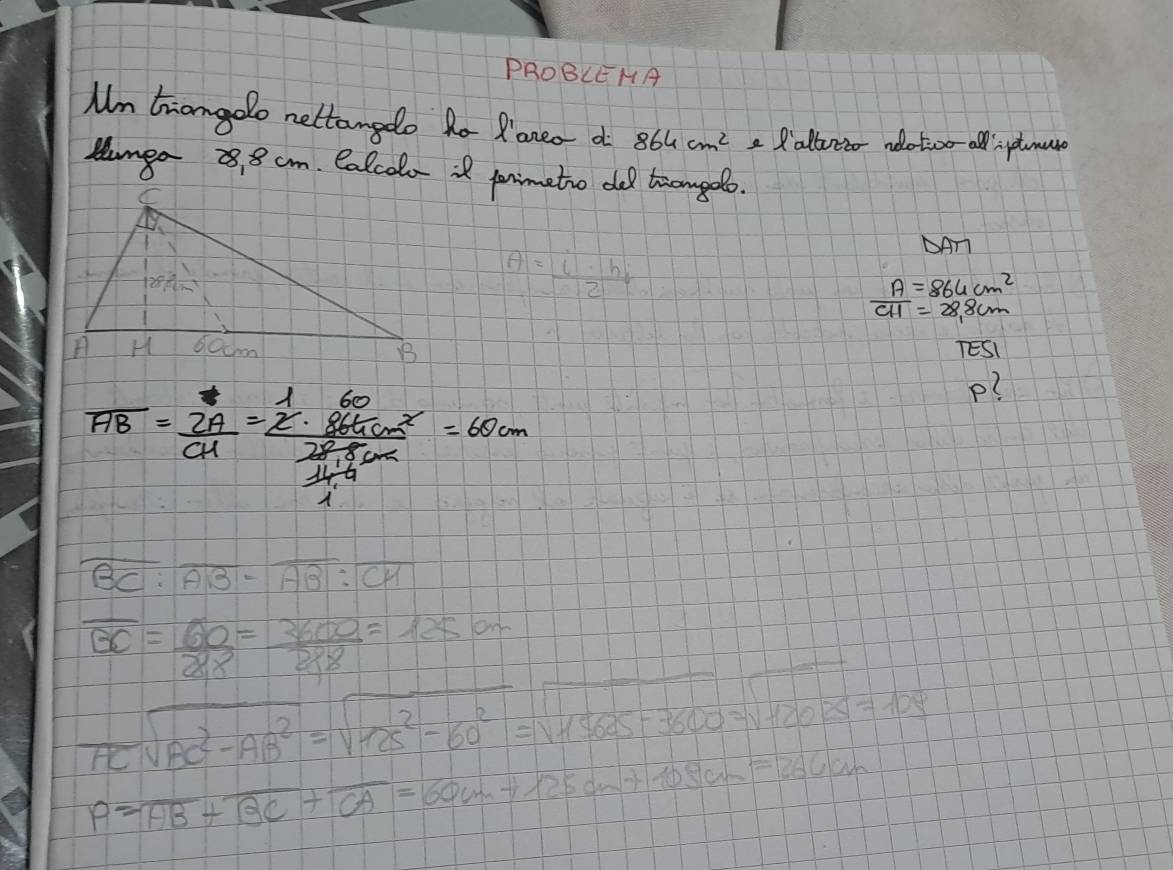 PROBLEMA
Un triangolo rettangolo ha l'area di 864 cm² e l'altezza relativa all'ipotenusa
lunga 28,8 cm. Calcola il perimetro del triangolo.
C
28,8cm
A H 60cm B
A = i · hi / 2
DATI
A = 864 cm²
CH = 28,8cm
TESI
P?
AB = 2A / CH = 2 · 864 cm² / 28,8 cm = 60 cm
1 60
14,4
1
BC : AB = AB : CH
BC = 60 / 28,8 = 3600 / 28,8 = 125 cm
AC √BC² - AB² = √125² - 60² = √15625 - 3600 = √12025 = 109
P = AB + BC + CA = 60cm + 125cm + 109cm = 294cm